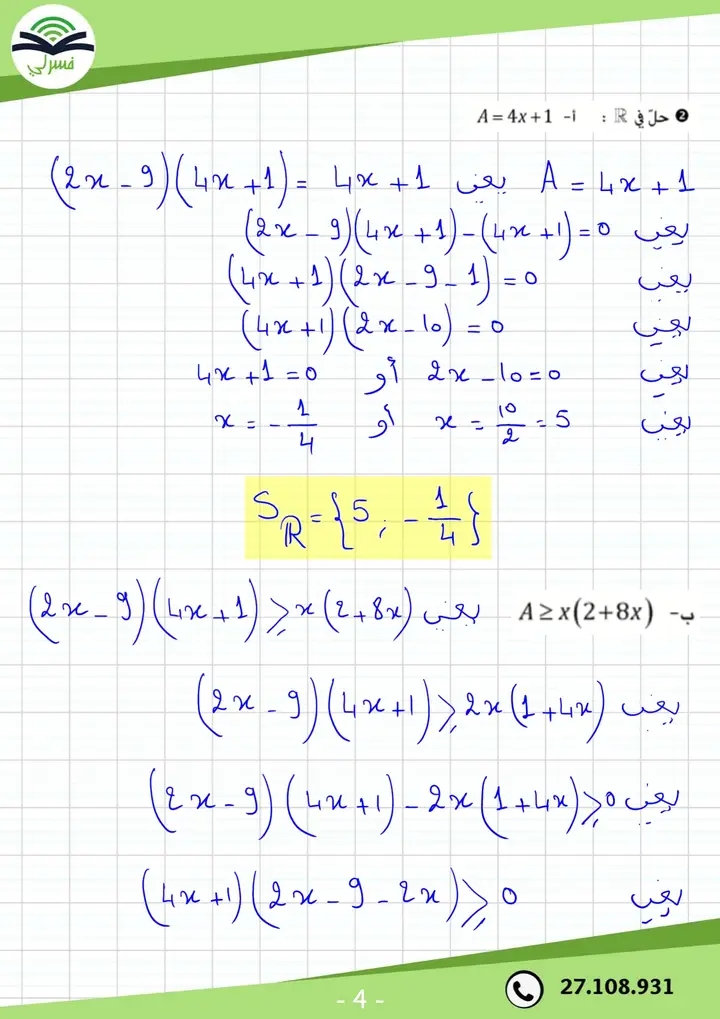 فسرلي
❷ حلّ في ℝ : أ- A = 4x+1
A = 4x + 1 يعني (2x - 9)(4x + 1) = 4x + 1
يعني (2x - 9)(4x + 1) - (4x + 1) = 0
يعني (4x + 1)(2x - 9 - 1) = 0
يعني (4x + 1)(2x - 10) = 0
يعني 2x - 10 = 0 أو 4x + 1 = 0
يعني x = 10/2 = 5 أو x = -1/4
S_ℝ = {5 ; -1/4}
ب- A ≥ x(2+8x) يعني (2x - 9)(4x + 1) ≥ x(2 + 8x)
يعني (2x - 9)(4x + 1) ≥ 2x(1 + 4x)
يعني (2x - 9)(4x + 1) - 2x(1 + 4x) ≥ 0
يعني (4x + 1)(2x - 9 - 2x) ≥ 0
27.108.931
- 4 -